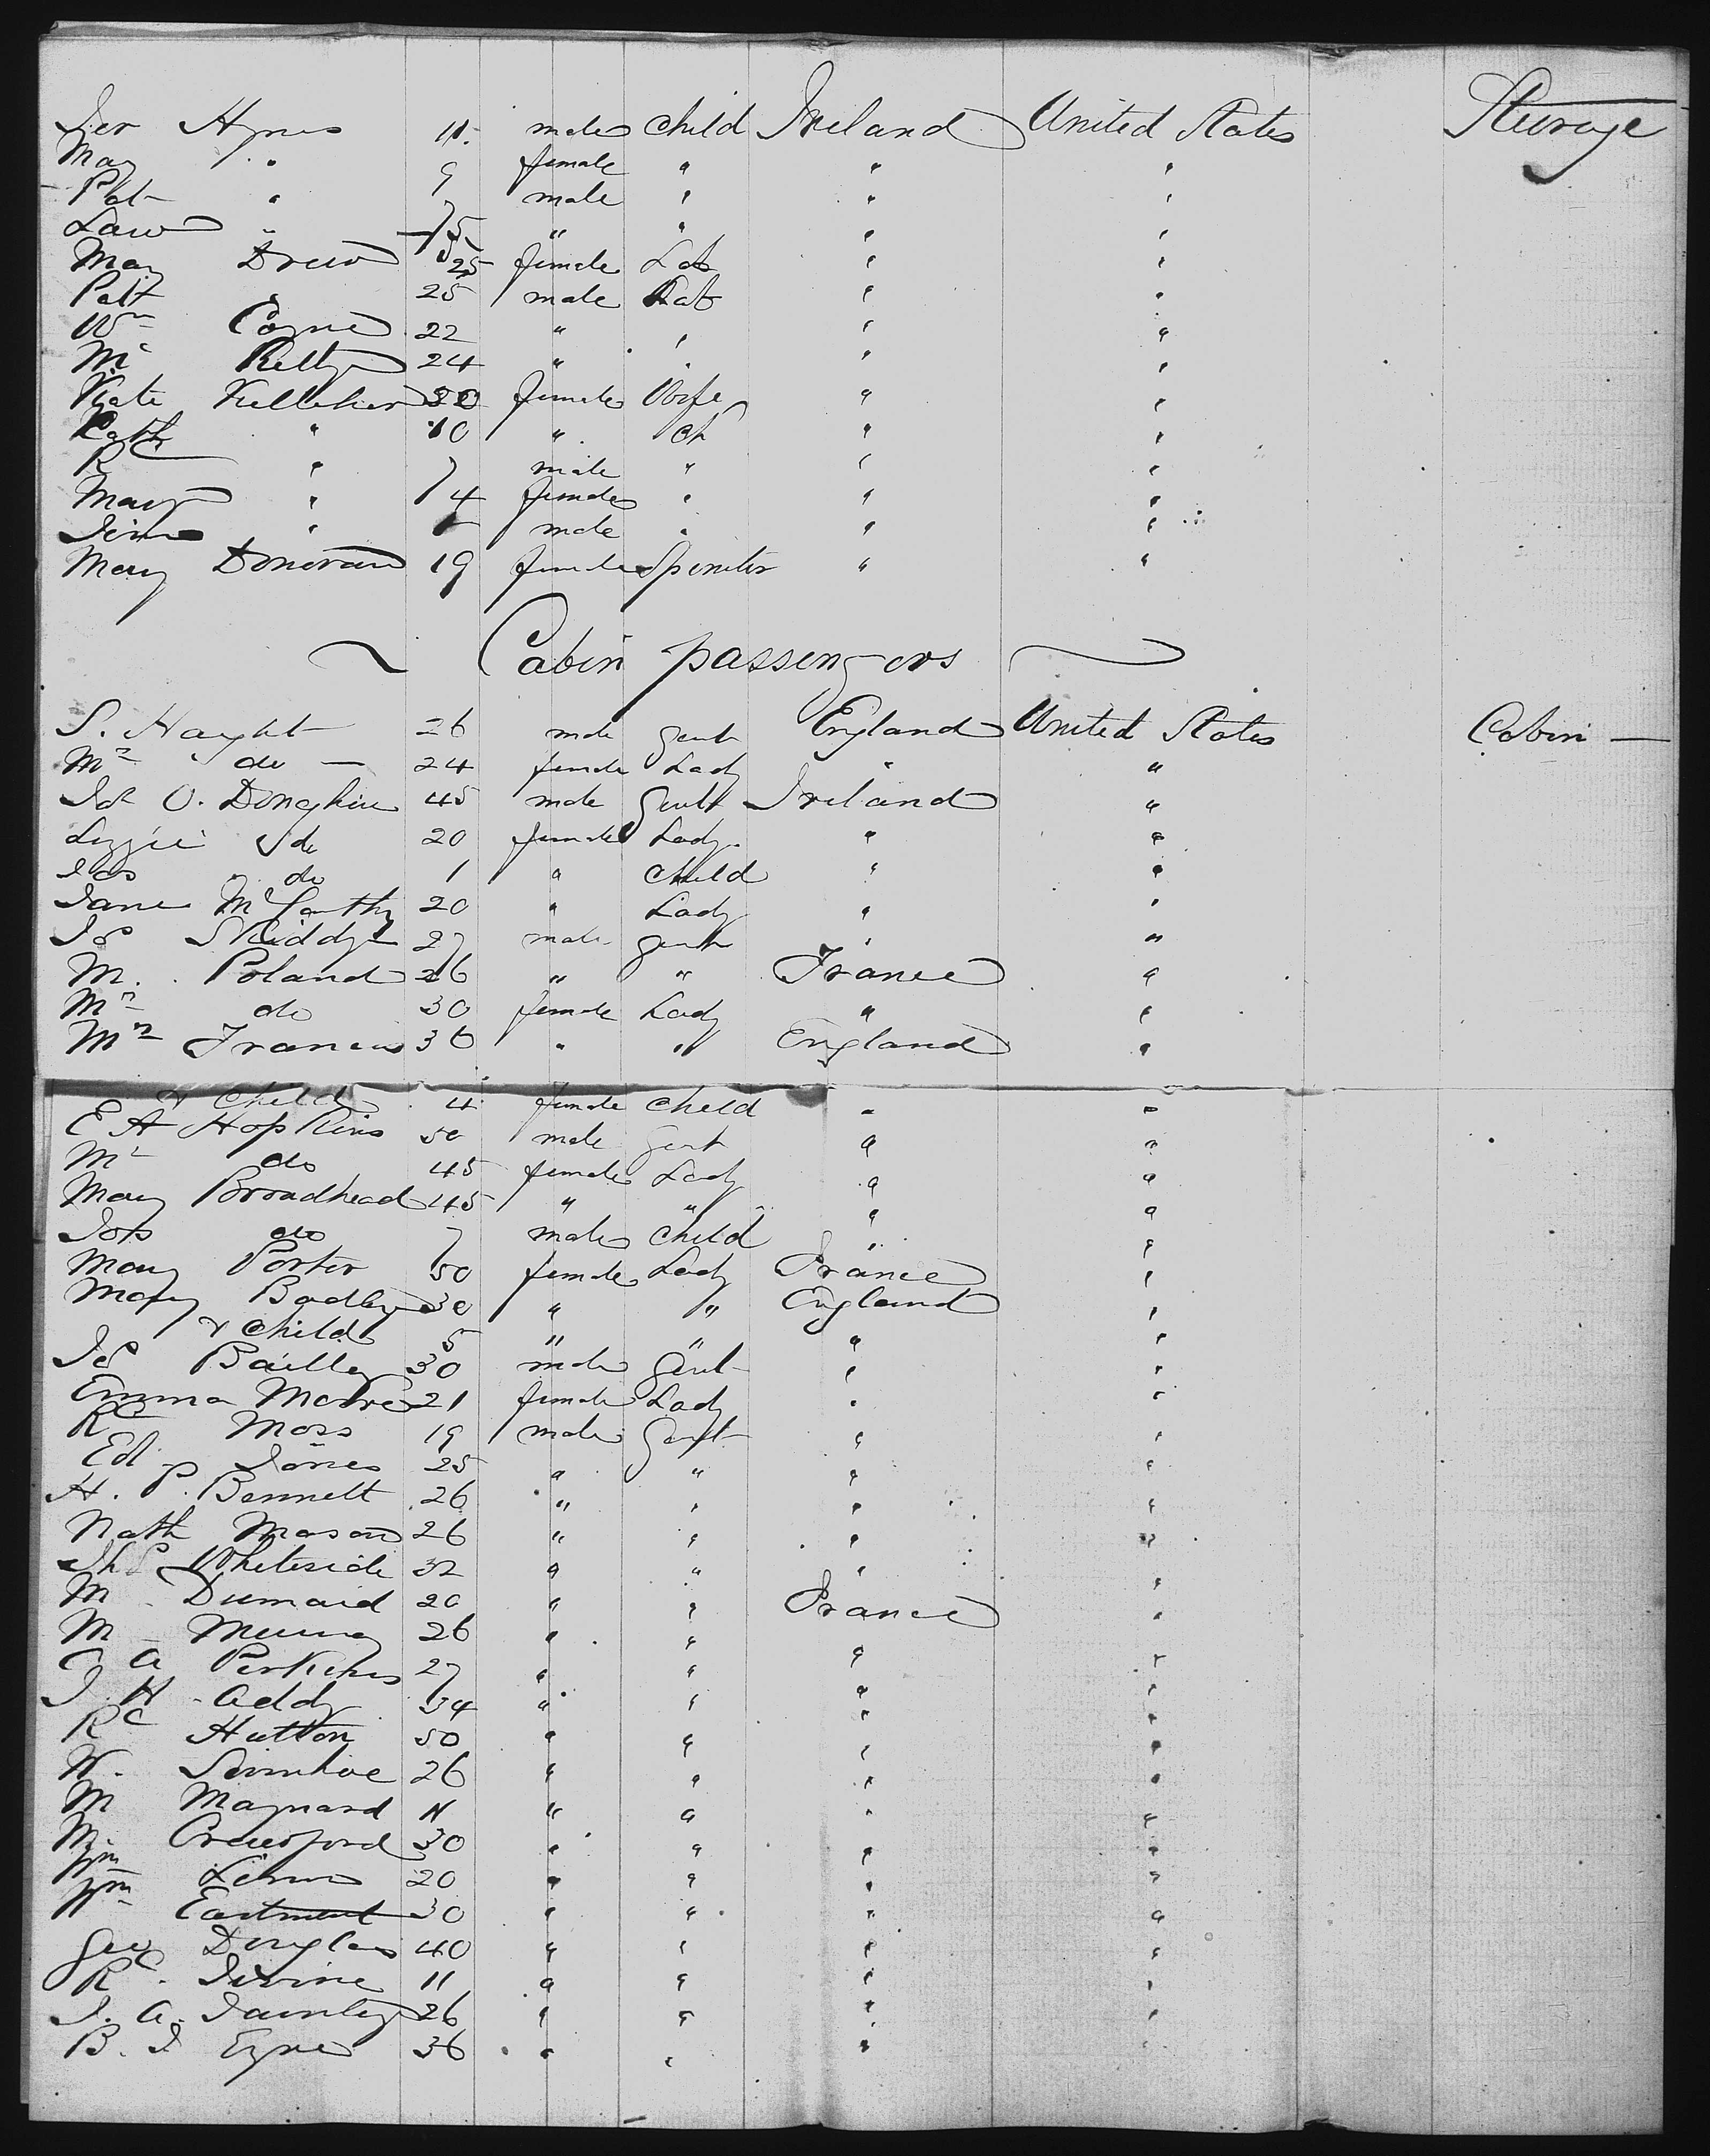 Jer Hynes 11 male child Ireland United States Steerage
May " 9 female " " "
Pat " 7 male " " "
Law " 5 " " " "
May Drew 25 female Lab " "
Patt " 25 male Lab " "
Wm Coyne 22 " " " "
Mc Kelly 24 " " " "
Kate Kelleher 30 female Wife " "
Cath " 10 " ch " "
Rd " 7 male " " "
Mary " 4 female " " "
" male " " "
Mary Donovan 19 female Spinster " "
Cabin passengers
S. Haight 26 male gent England United States Cabin —
Mrs " do — 24 female Lady " "
Jas O. Donoghue 45 male Gent Ireland "
Lizzie do 20 female Lady " "
Jas do 1 " child " "
Jane McCarthy 20 " Lady " "
Js Skiddy 27 male gent " "
M. Poland 26 " " France "
Mrs do 30 female Lady " "
Mrs Francis 36 " " England "
& Child 4 female child " "
E A Hopkins 50 male Gent " "
Mrs do 45 female Lady " "
Mary Broadhead 45 " " " "
Jos do 7 male child " "
Mary Porter 50 female Lady France "
Mary Badley 30 " " England "
& Child 5 " " " "
Js Bailley 30 male Gent " "
Emma Moore 21 female Lady " "
Rd Moss 19 male Gent " "
Ed Jones 25 " " " "
H. P. Bennett 26 " " " "
Nath Mason 26 " " " "
Whiteside 32 " " " "
M. Dumaid 20 " " France "
M 26 " " " "
A Perkins 27 " " " "
J. H. Addy 34 " " " "
Rd Hutton 50 " " " "
W. 26 " " " "
M Maynard 11 " " " "
M. Crawford 30 " " " "
Wm Lewis 20 " " " "
Wm Eastment 30 " " " "
Geo Douglas 40 " " " "
Rd. Divine 11 " " " "
J. A. 26 " " " "
B. J Eyre 36 " " " "